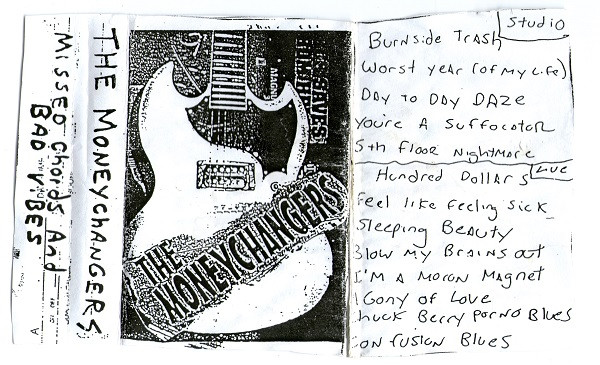 MISSED CHORDS AND
BAD VIBES
THE MONEYCHANGERS
A
THE
MONEYCHANGERS
STUDIO
BURNSIDE TRASH
WORST YEAR (OF MY LIFE)
DAY TO DAY DAZE
YOU'RE A SUFFOCATOR
5th FLOOR NIGHTMARE
LIVE
HUNDRED DOLLARS
feel like feeling SICK
Sleeping BEAUTY
BLOW MY BRAINS OUT
I'M A MORON MAGNET
AGONY OF LOVE
HUCK BERRY PORNO BLUES
ON FUSION BLUES